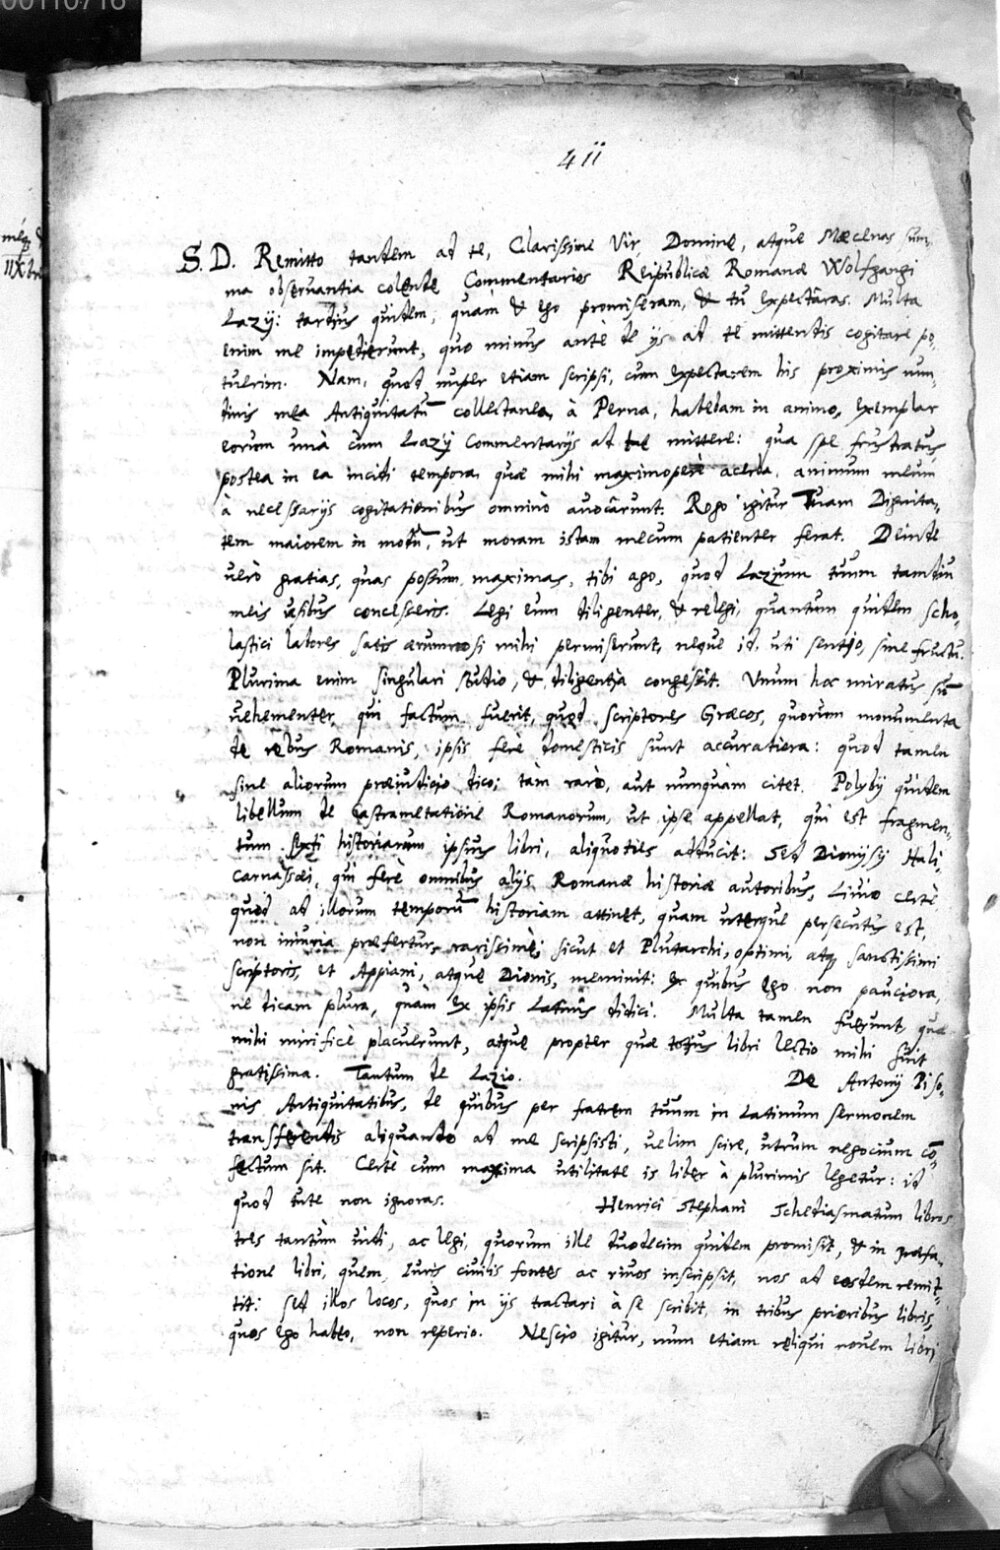 00110716
411
S. D. Remitto tandem ad te, Clarissime Vir, Domine, atque Mæcenas sum,
ma observantia colende Commentarios Reipublicæ Romanæ Wolfgangi
Lazij: tardius quidem, quàm & ego promiseram, & tu expectâras. Multa
enim me impedierunt, quo minus antè de ijs ad te mittendis cogitare po,
tuerim. Nam, quod nuper etiam scripsi, cum expectarem his proximis nun,
dinis mea Antiquitatū collectanea, à Perna, habebam in animo, exemplar
eorum unà cum Lazij Commentarijs ad te mittere: qua spe frustratus
postea in ea incidi tempora, quæ mihi maximoperè acerba, animum meum
à necessarijs cogitationibus omninò avocârunt. Rogo igitur Tuam Dignita,
tem maiorem in modū, ut moram istam mecum patienter ferat. Deinde
verò gratias, quas possum, maximas, tibi ago, quod Lazium tuum tamdiu
meis usibus concesseris. Legi eum diligenter, & relegi, quantum quidem scho,
lastici labores satis ærumnosi mihi permiserunt, neque id, uti sentio, sine fructu.
Plurima enim singulari studio, & diligentia congessit. Unum hoc miratus sū
vehementer, qui factum fuerit, quod scriptores Græcos, quorum monumenta
de rebus Romanis, ipsis ferè domesticis sunt accuratiora: quod tamen
sine aliorum præiudicio dico; tàm rarò, aut nunquàm citet. Polybij quidem
libellum de Castrametatione Romanorum, ut ipse appellat, qui est fragmen,
tum sexti historiarum ipsius libri, aliquoties adducit: Sed Dionysij Hali,
carnassæi, qui ferè omnibus alijs Romanæ historiæ autoribus, Livio certè
quod ad illorum temporū historiam attinet, quam uterque persecutus est,
non iniuria præfertur, rarissimè; sicut et Plutarchi, optimi, atq sanctissimi
scriptoris, et Appiani, atque Dionis, meminit: ex quibus ego non pauciora,
ne dicam plura, quàm ex ipsis Latinis didici. Multa tamen fuerunt, quæ
mihi mirificè placuerunt, atque propter quæ totius libri lectio mihi fuit
gratissima. Tantum de Lazio. De Antonij Piso,
nis Antiquitatibus, de quibus per fratrem tuum in Latinum sermonem
transferendis aliquando ad me scripsisti, velim scire, utrum negocium cō,
fectum sit. Certè cum maxima utilitate is liber à plurimis legetur: id
quod tute non ignoras. Henrici Stephani Schediasmatum libros
tres tantùm vidi, ac legi, quorum ille duodecim quidem promisit, & in præfa,
tione libri, quem Iuris civilis fontes ac rivos inscripsit, nos ad eosdem remit,
tit: sed illos locos, quos in ijs tractari à se scribit, in tribus prioribus libris,
quos ego habeo, non reperio. Nescio igitur, num etiam reliqui novem libri